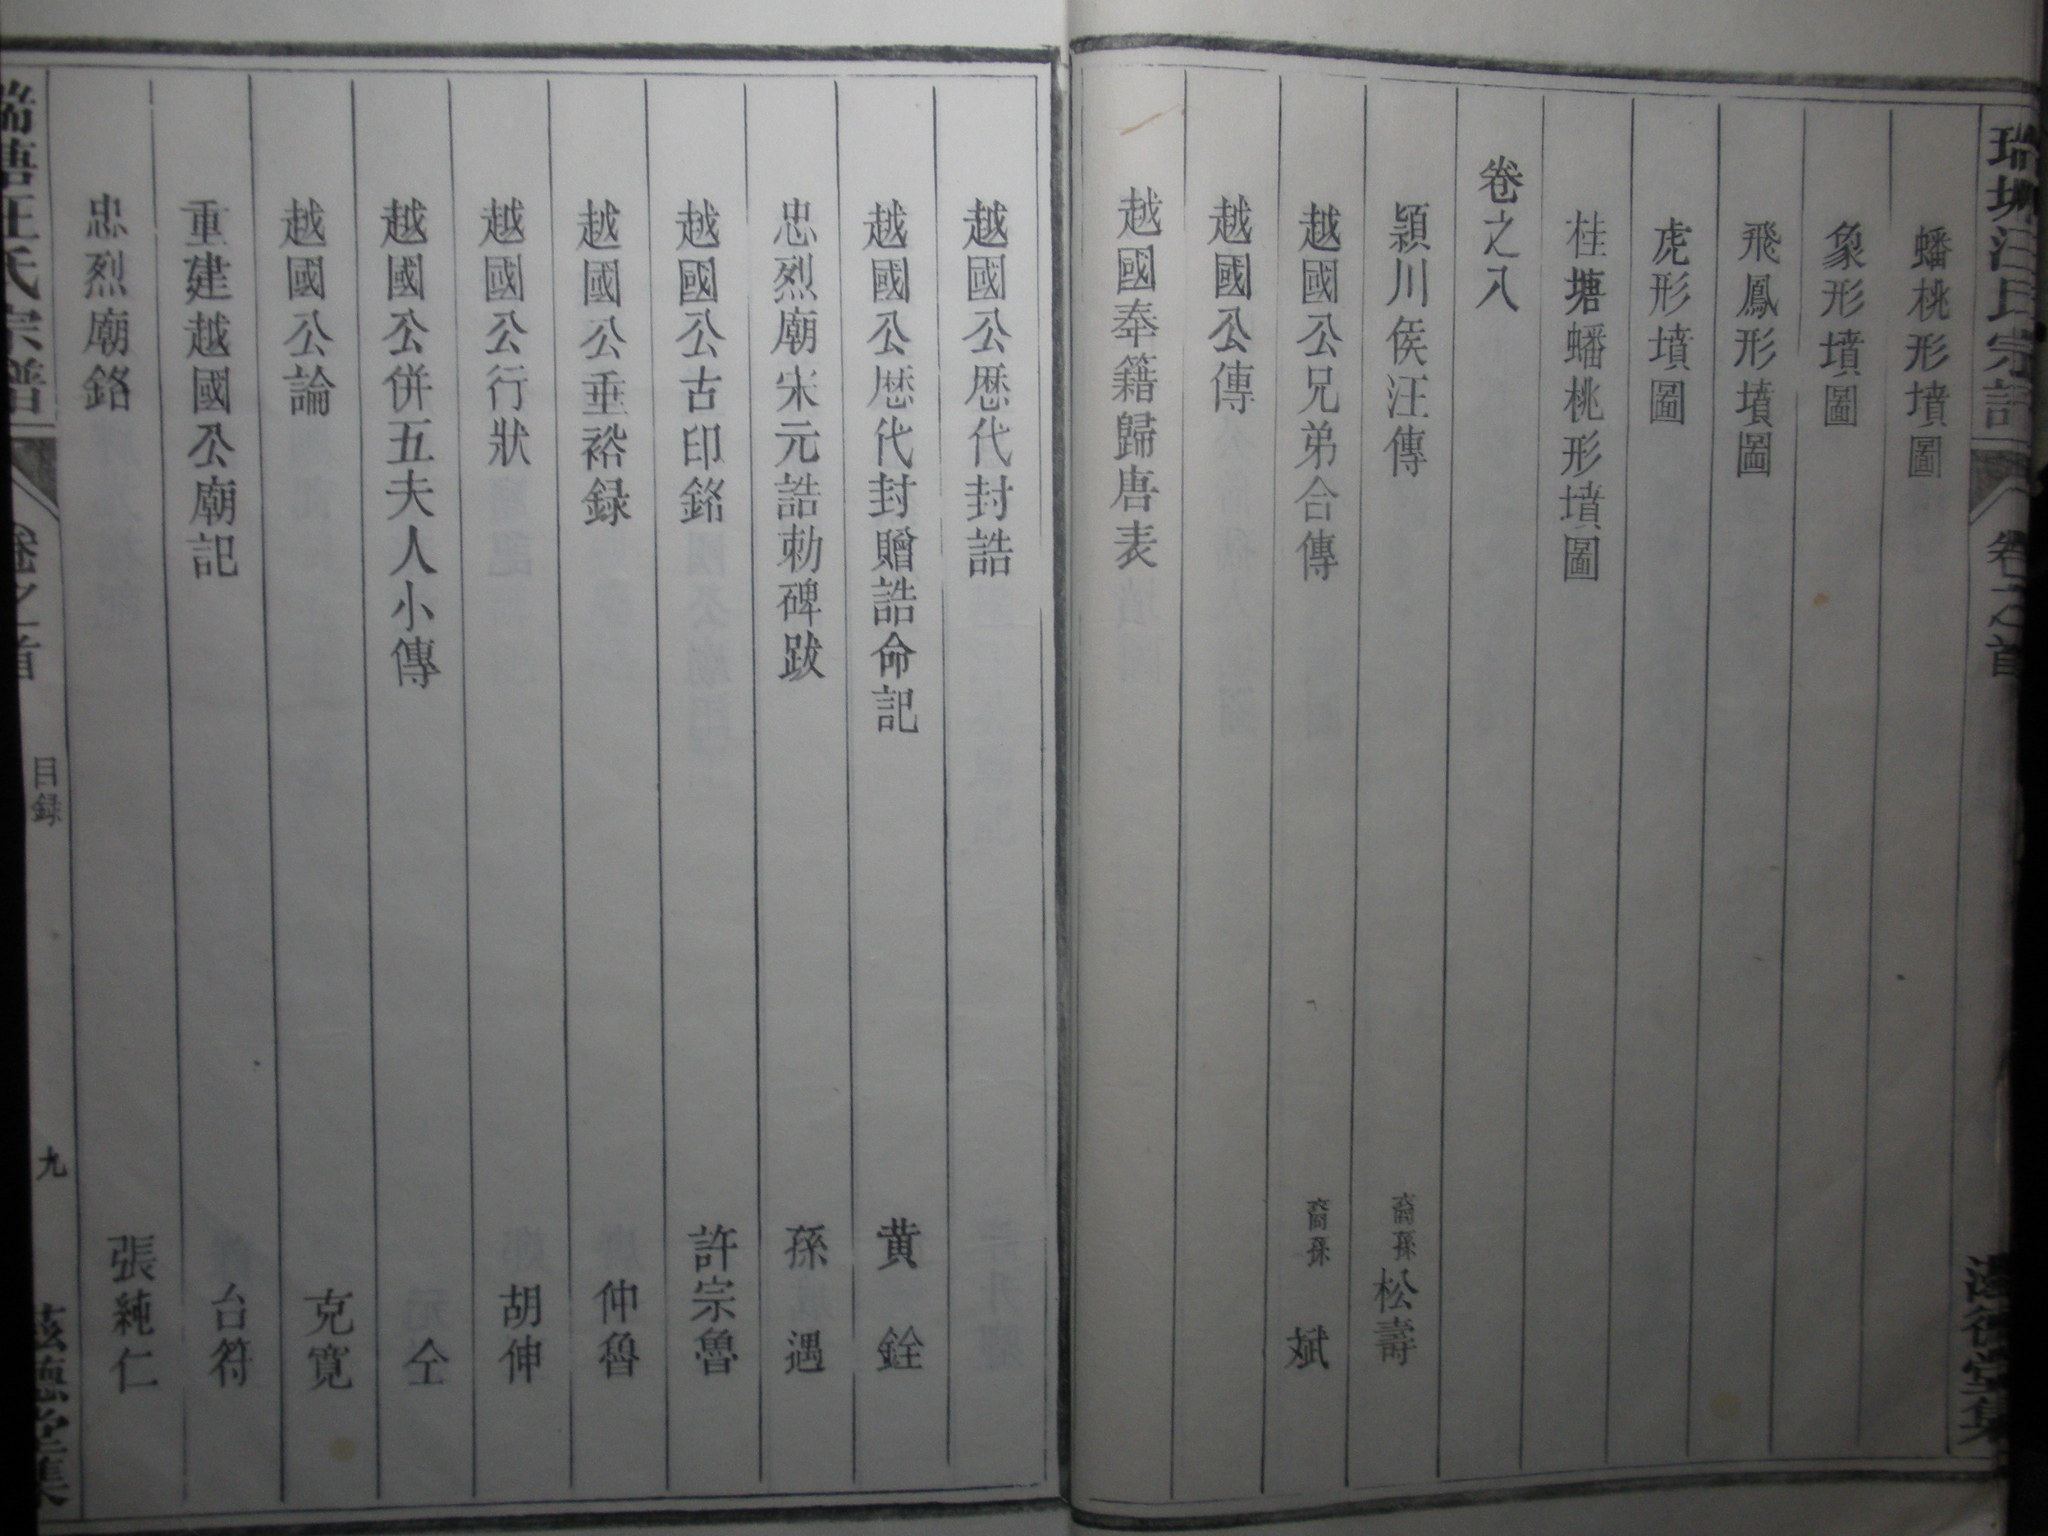 瑞塘汪氏宗譜
卷之首
蟠桃形墳圖
象形墳圖
飛鳳形墳圖
虎形墳圖
桂塘蟠桃形墳圖
卷之八
潁川侯汪傳 裔孫 松壽
越國公兄弟合傳 裔孫 斌
越國公傳
越國奉籍歸唐表
越國公歴代封誥
越國公歴代封贈誥命記 黄銓
忠烈廟宋元誥勅碑跋 孫遇
越國公古印銘 許宗魯
越國公垂裕録 仲魯
越國公行狀 胡伸
越國公併五夫人小傳 仝
越國公論 克寬
重建越國公廟記 台符
忠烈廟銘 張純仁
瑞塘汪氏宗譜
卷之首
目録
九